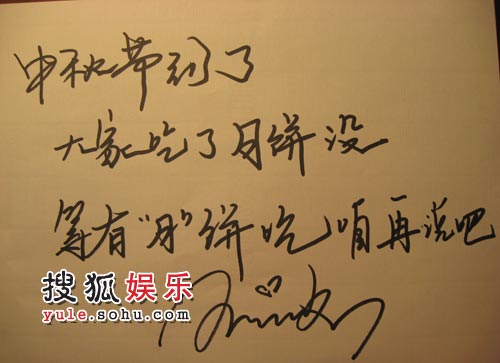 中秋节到了
大家吃了月饼没
等有“月”饼吃咱再说吧
搜狐娱乐
yule.sohu.com